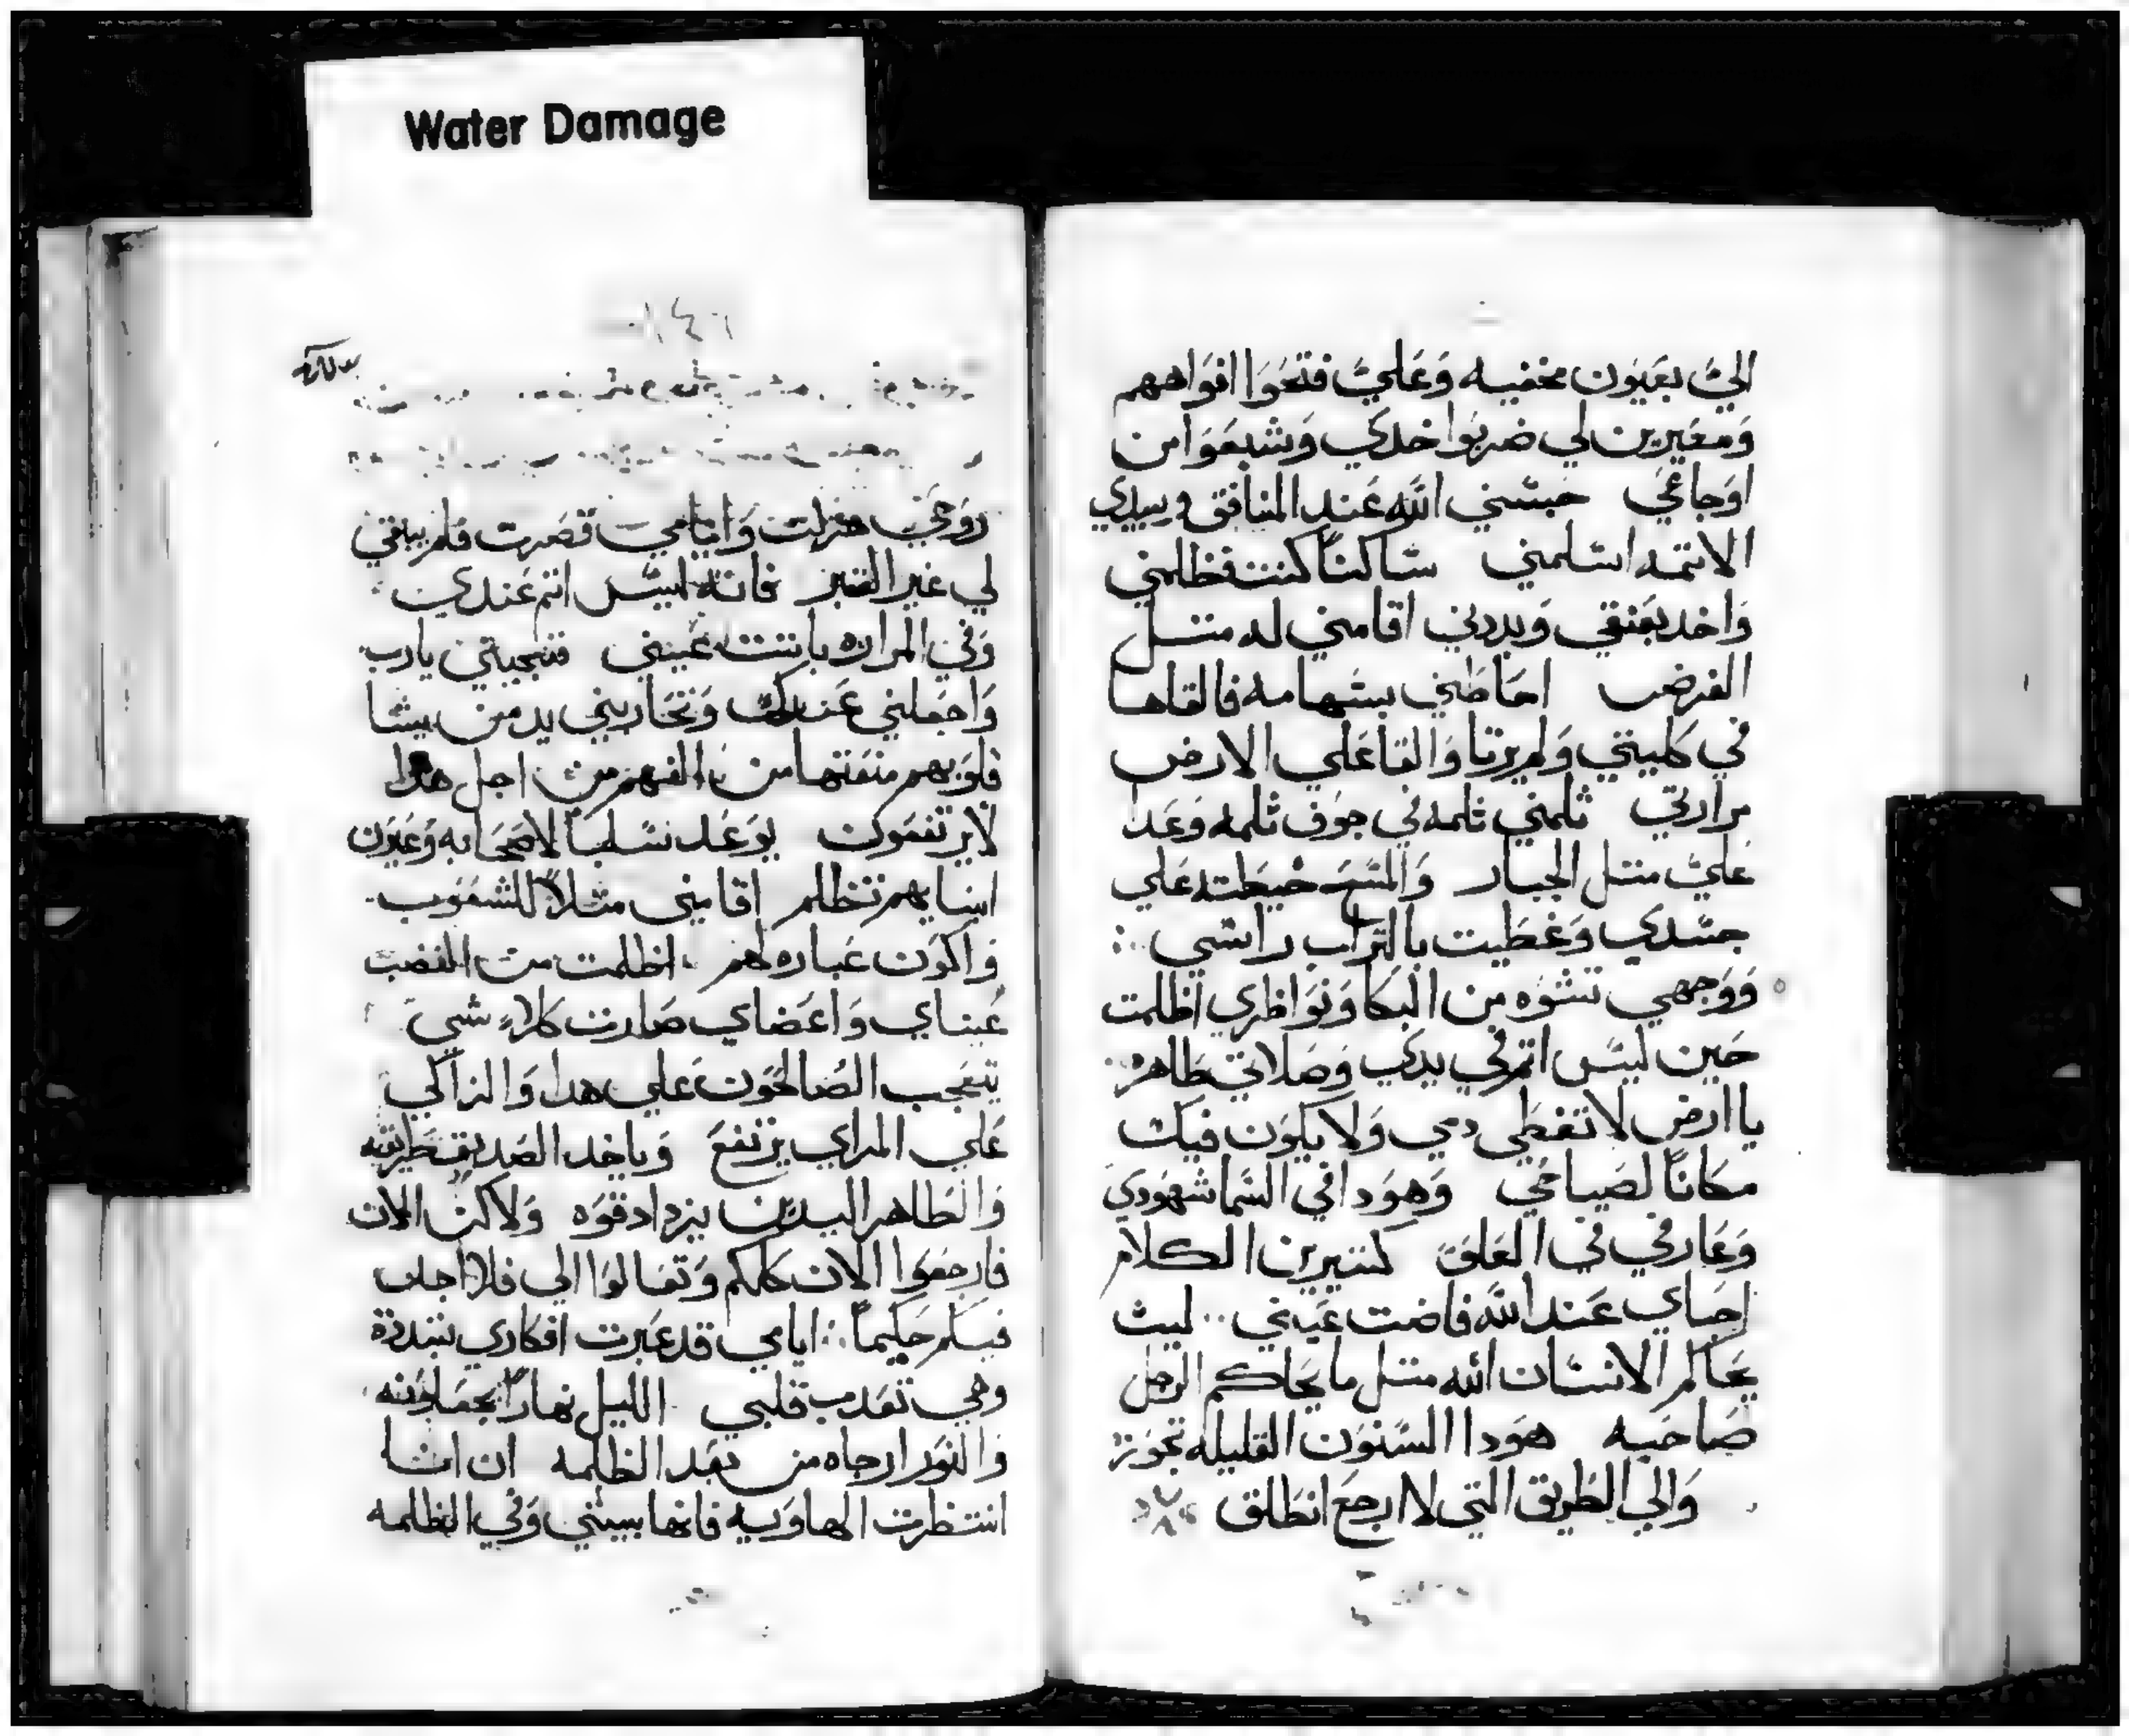 Water Damage
الىّ بعيون مخفيه وعلىّ فتحوا افواههم
ومعيرين لي ضربوا خدي وشبعوا من
اوجاعي حبسني الله عند المنافق وبيدي
الاتمه اسلمني ساكناً كنت فظلمني
واخد بعنقي وبددني اقامني له متل
الغرض احاطني بسهامه فالقاها
في كليتي ولم يرتا والقا علي الارض
مرارتي ثلمني ثلمه في جوف ثلمه وعدا
عليّ متل الجبار والمسح خيطته علي
جسدي وغطيت بالتراب راسي
ووجهي تشوه من البكا ونواظري اظلمت
حين ليس اتم في يدي وصلاتي طاهره
يا ارض لا تغطي دمي ولا يكون فيك
مكاناً لصياحي وهودا في السما شهودي
وعارفي في العلو كتيرين الكلام
احباي عند الله فاضت عيني ليت
يحاكم الانسان الله متل ما يحاكم الرجل
صاحبه هودا السنون القليله تجوز
والي الطريق التي لا ارجع انطلق
١٤٦
روحي هزلت وايامي قصرت فلم يبقي
لي غير القبر فانه ليس اتم عندي
وفي المراره باتت عيني فتجيبني يارب
واجعلني عندك وتحاربني يد من يشا
قلوبهم منعتها من الفهم من اجل هدا
لا يرتفعون يوعد نسلباً لاصحابه وعيون
ابنايهم تظلم اقامني مثلاً للشعوب
واكون عباره لهم اظلمت من الغضب
عيناي واعضاي صارت كلا شي
يتعجب الصالحون علي هدا والزاكي
علي المراي يرتفع وياخد الصديق طريقه
والطاهر اليدين يزداد قوه ولاكن الان
فارجعوا الان كلكم وتعالوا الي فلا اجد
فيكم حكيماً ايامي قد عبرت افكاري تبددة
وهي تعدب قلبي الليل نهاراً
والنور ارجاه من بعد الظلمه ان انا
انتظرت الهاويه فانها بيتي وفي الظلمه